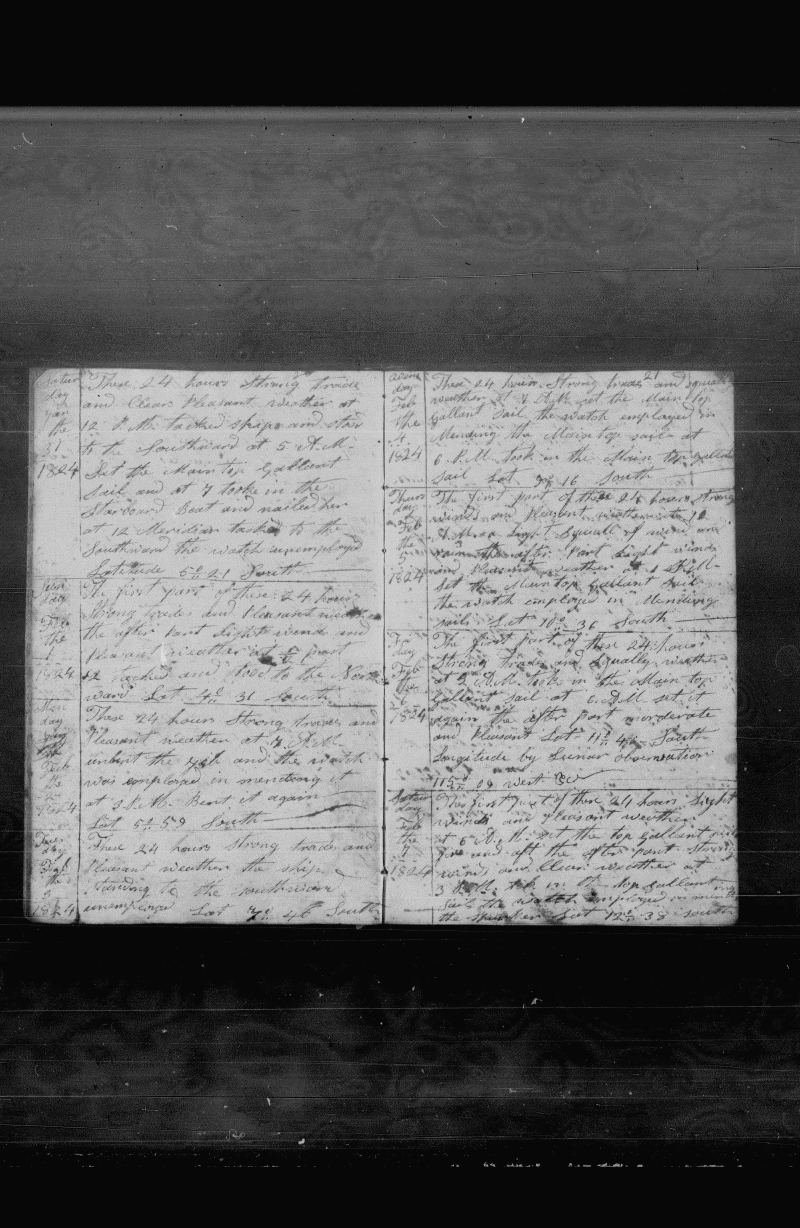 Satur
day
Jan
the
31
1824
These 24 hours Strong trade
and Clear Pleasant weather at
12 P.M. tacked ships and stood
to the Southward at 5 A.M.
Set the Main top Gallant
Sail and at 7 tooke in the
Starbourd Boat and nailed her
at 12 Meridien tacked to the
Southward the watch unemployed
Latitude 5° 21 South
day
Feb
the
1
1824
The first part of these 24 hours
Strong trades and Pleasant weather
the after Part Light winds and
Pleasant weather at past
12 tacked and stood to the North
ward Lat 4° 31 South
Mon
day
Feb
the
2
1824
These 24 hours Strong trades and
Pleasant weather at 7 A.M.
unbent the and the watch
was employed in mendiong it
at 3 P.M. Bent it again
Lat 5° 59 South
Tues
day
Feb
the
3
1824
These 24 hours strong trade and
Pleasant weather the ship
Standing to the southward
unemployed Lat 7° 46 South
21
day
Feb
the
4
1824
These 24 hours Strong trades and squaly
weather at 7 A.M. set the Main top
Gallant Sail the watch employed in
Mending the Main top sail at
6 P.M. took in the Main top gallant
Sail Lat 16 South
Thurs
day
Feb
the
1824
The first part of these 24 hours strong
winds and Pleasant weather at 12
Squall of wind and
rain the after Part Light winds
and Pleasant weather at A.M.
Set the Main top Gallant Sail
the watch employed in Mending
sails Lat 10° 36 South
Fri
day
Feb
the
6
1824
The first part of these 24 hours
Strong trade and Squally weather
at 2 A.M. tooke in the Main top
Gallant sail at 6 A.M set it
again the after part moderate
and Pleasant Lat 11° 46 South
Longitude by Lunar observation
115° 09 West
Satur
day
Feb
the
7
1824
The first part of these 24 hours Light
winds and Pleasant weather
at 6 A.M. set the top Gallant sails
fore and aft the after part strong
winds and Clear weather at
3 P.M. tok in the top gallant
Sails the watch employed in mending
the spanker Lat 12° 38 South